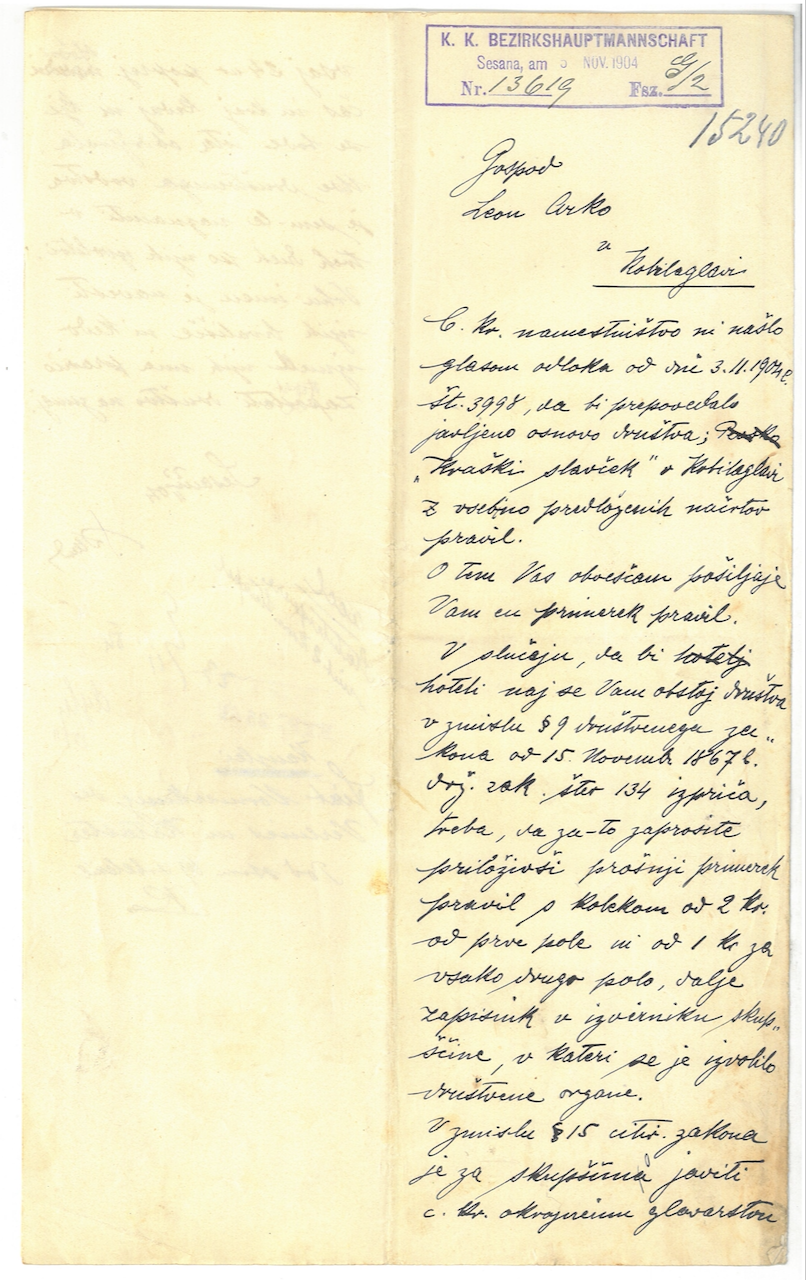 K. K. BEZIRKSHAUPTMANNSCHAFT
Sesana, am 5 NOV. 1904
Nr. 13619 Fsz. G/2
15240
Gospod
Leon Arko
v
Kobilaglavi
C. kr. namestništvo ni našlo
glasom odloka od dné 3.11.1904 l.
št. 3998, da bi prepovedalo
javljeno osnovo društva;
„Kraški slavček" v Kobilaglavi
z vsebino predloženih načrtov
pravil.
O tem Vas obveščam pošiljaje
Vam en primerek pravil.
V slučaju, da bi hotelj
hoteli naj se Vam obstoj društva
v zmislu § 9 društvenega za„
kona od 15. Novemb. 1867 l.
drž. zak. štev 134 izpriča,
treba, da za-to zaprosite
priloživši prošnji primerek
pravil s kolekom od 2 Kr.
od prve pole in od 1 Kr za
vsako drugo polo, dalje
zapisnik v izvirniku skup„
ščine, v kateri se je izvolilo
društvene organe.
V zmislu § 15 citir. zakona
je za skupščina javiti
c. kr. okrajnemu glavarstvu